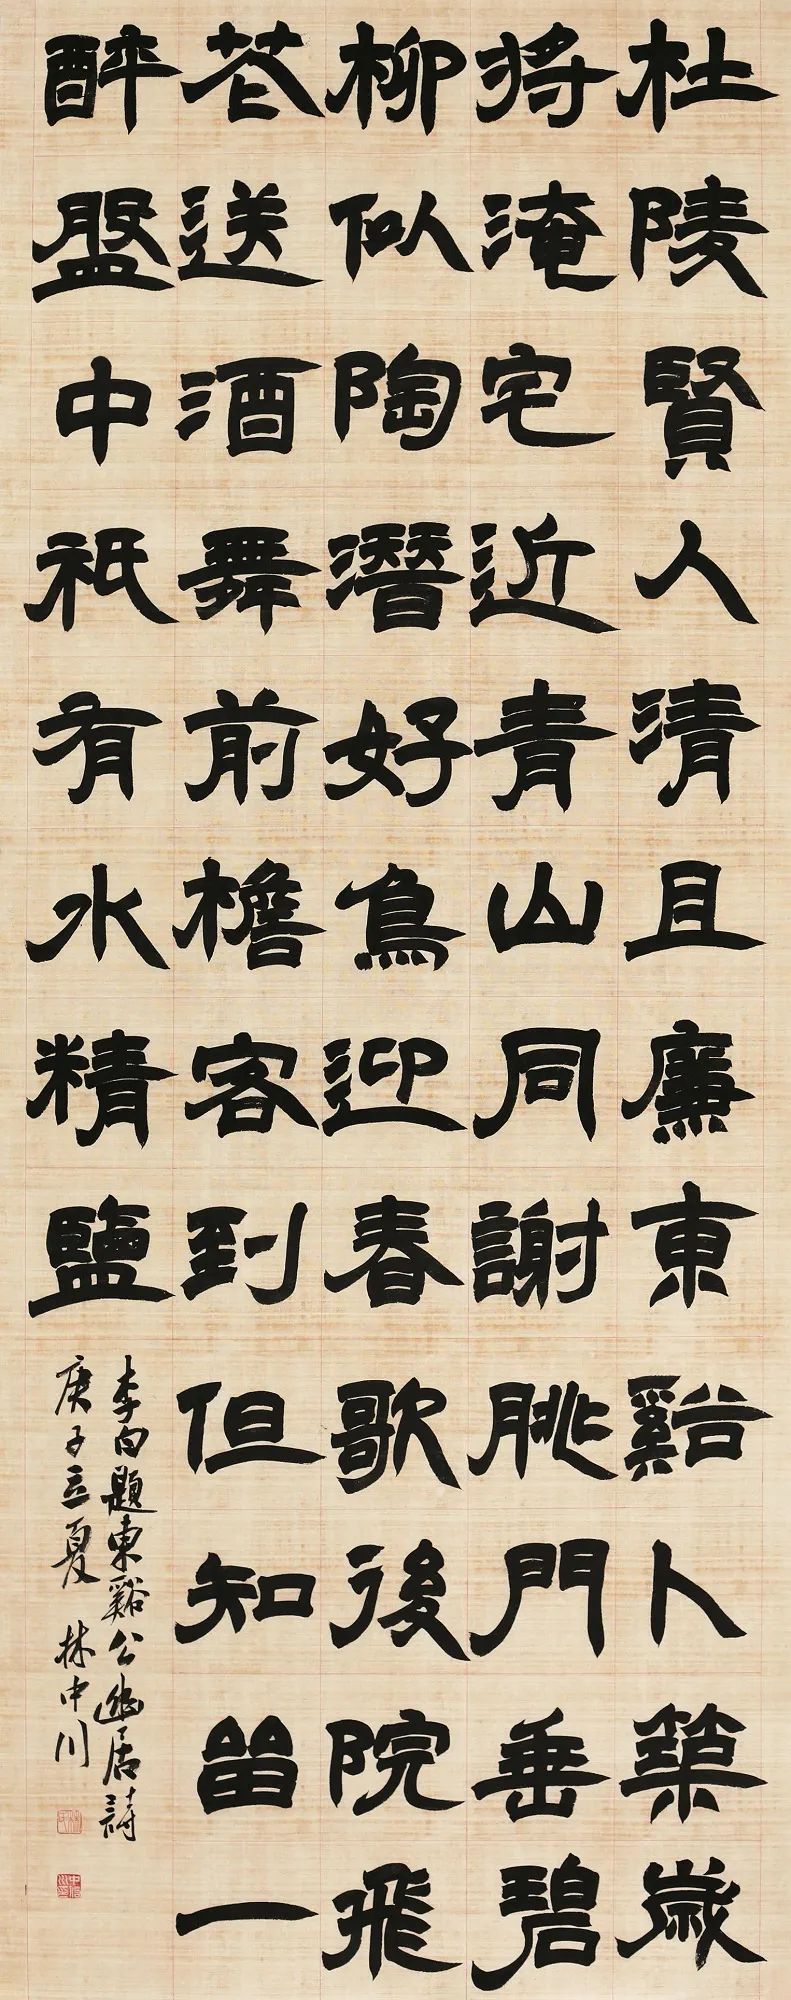 杜陵賢人清且廉東谿卜築歲
將淹宅近青山同謝朓門垂碧
柳似陶潛好鳥迎春歌後院飛
花送酒舞前檐客到但知留一
醉盤中祇有水精鹽
李白題東谿公幽居詩
庚子立夏 林中川